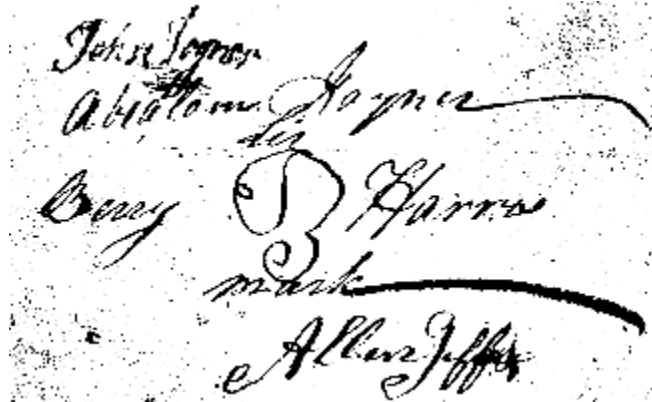 John Joyner
Abıgalom Joyner
his
Berry B Harris
mark
Allen Jeffrs